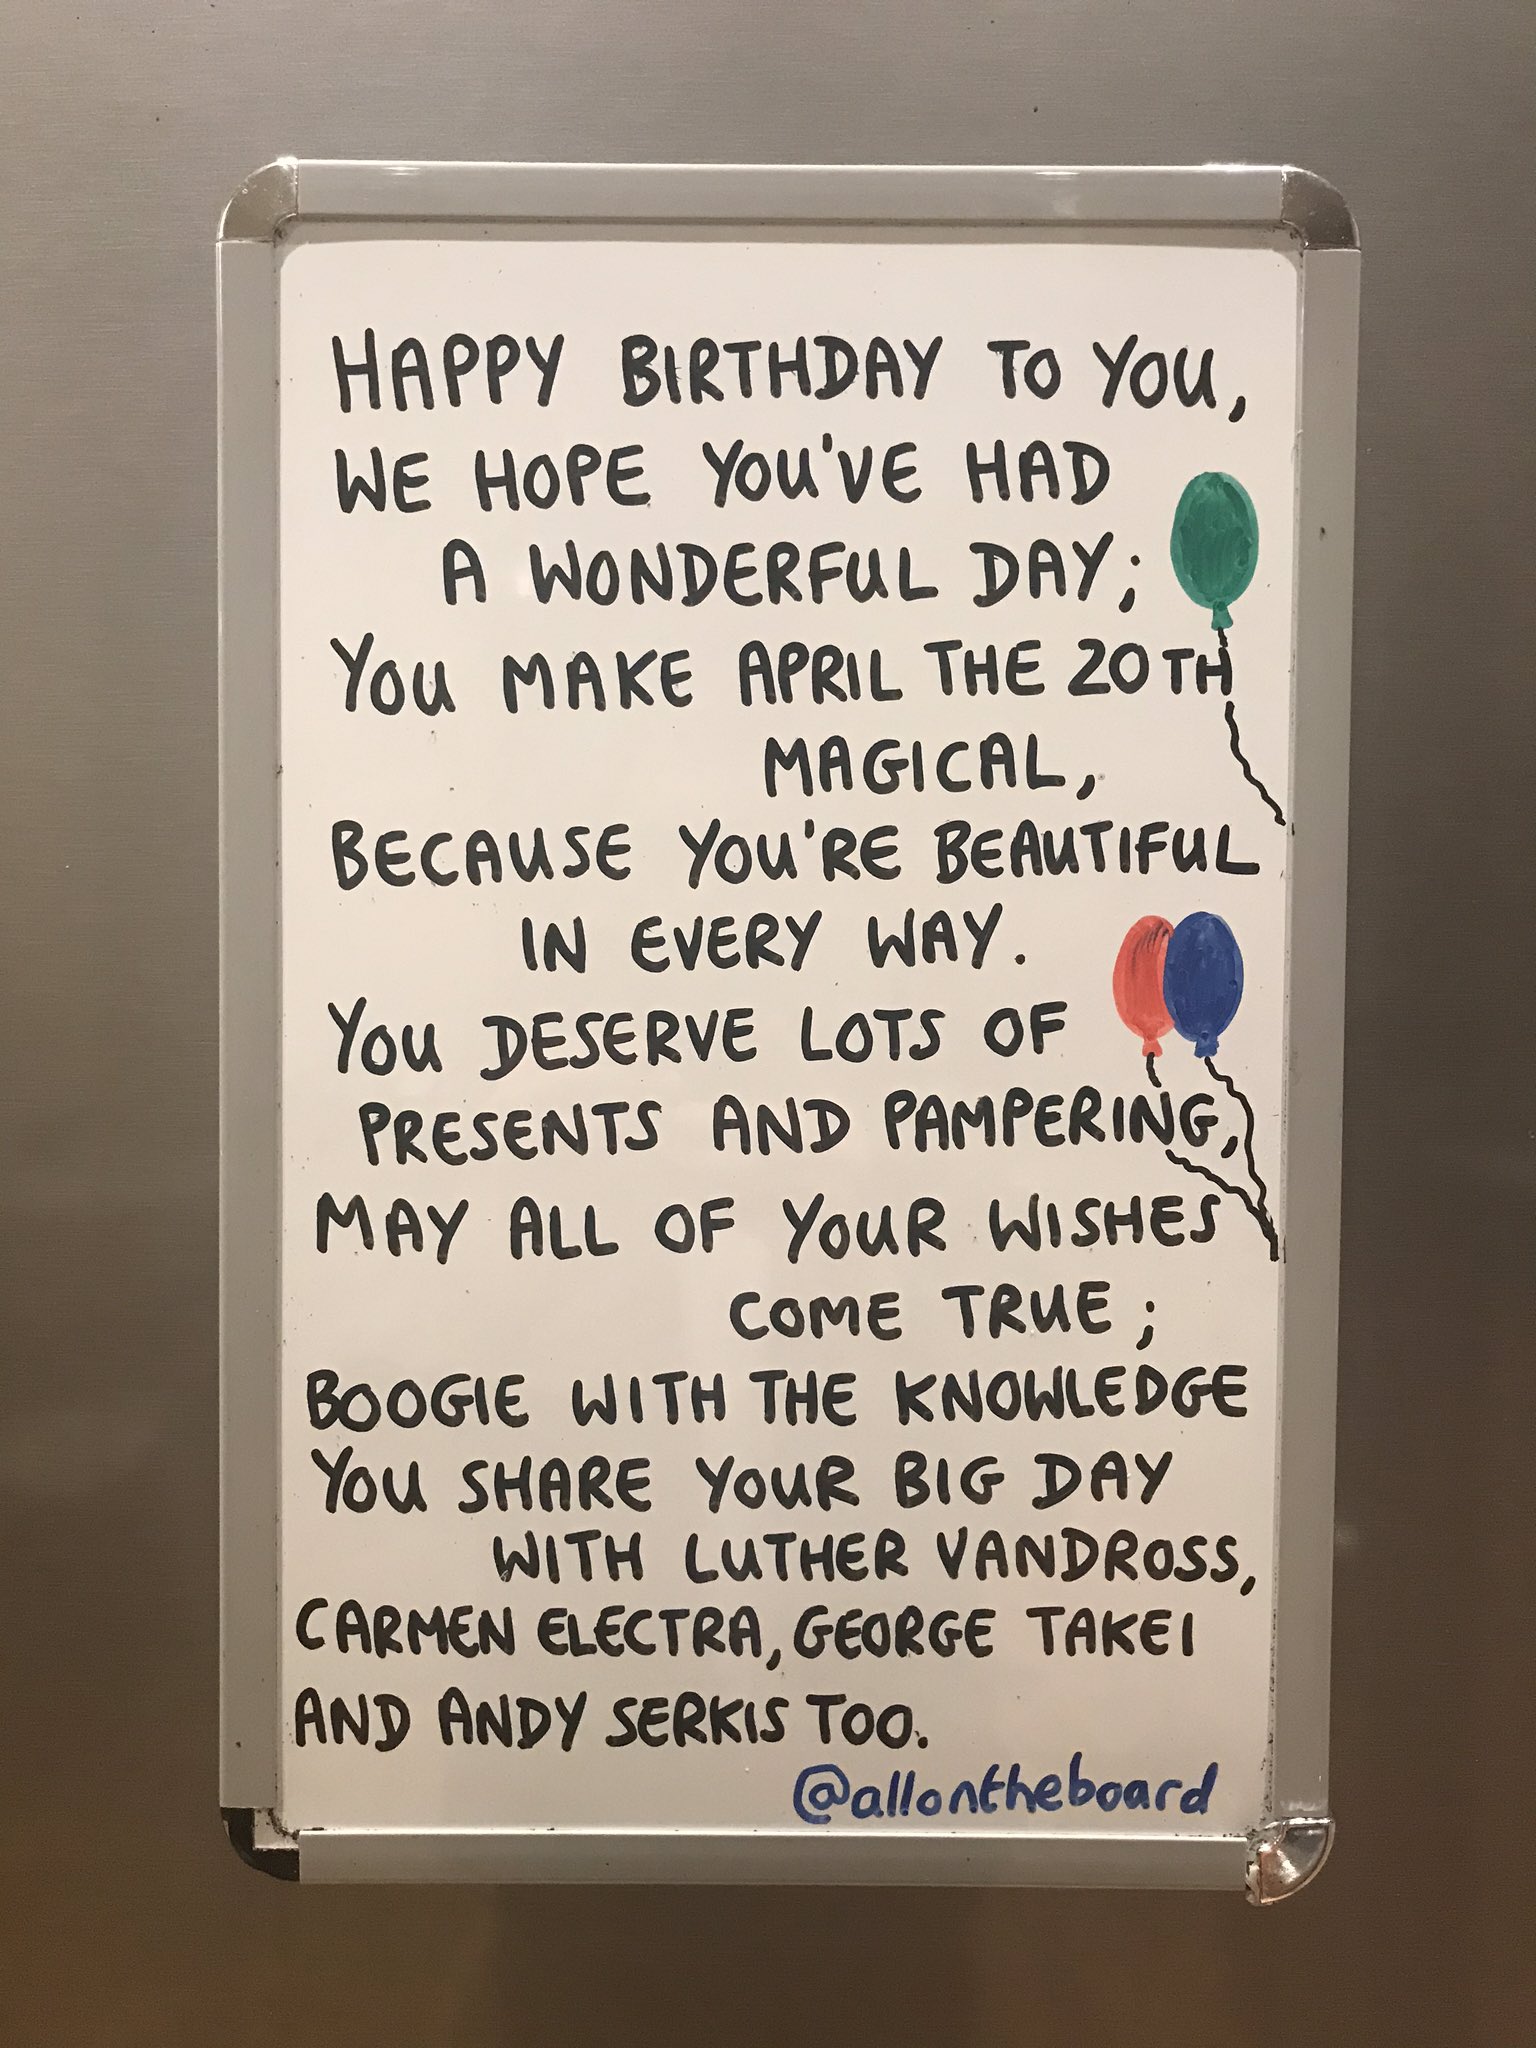 HAPPY BIRTHDAY TO YOU,
WE HOPE YOU'VE HAD
A WONDERFUL DAY;
YOU MAKE APRIL THE 20TH
MAGICAL,
BECAUSE YOU'RE BEAUTIFUL
IN EVERY WAY.
YOU DESERVE LOTS OF
PRESENTS AND PAMPERING,
MAY ALL OF YOUR WISHES
COME TRUE;
BOOGIE WITH THE KNOWLEDGE
YOU SHARE YOUR BIG DAY
WITH LUTHER VANDROSS,
CARMEN ELECTRA, GEORGE TAKEI
AND ANDY SERKIS TOO.
@allontheboard